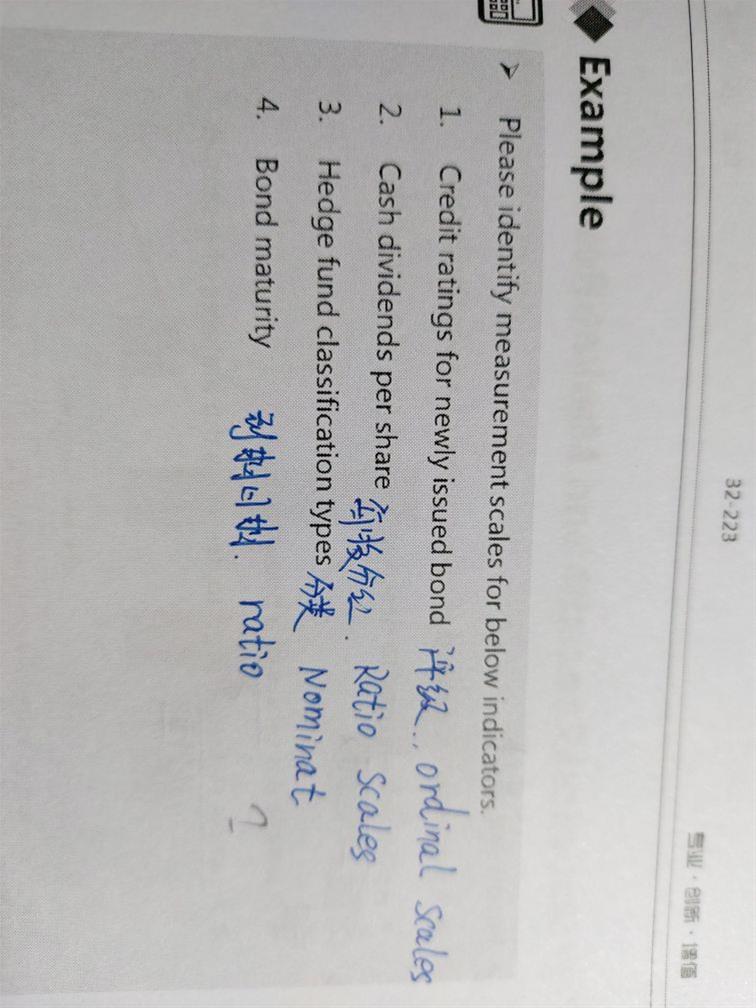 32-223
专业·创新·增值
Example
➢ Please identify measurement scales for below indicators.
1. Credit ratings for newly issued bond 评级.. ordinal scales
2. Cash dividends per share 每股分红. Ratio scales
3. Hedge fund classification types 分类 Nominat
4. Bond maturity 到期时间. ratio ?